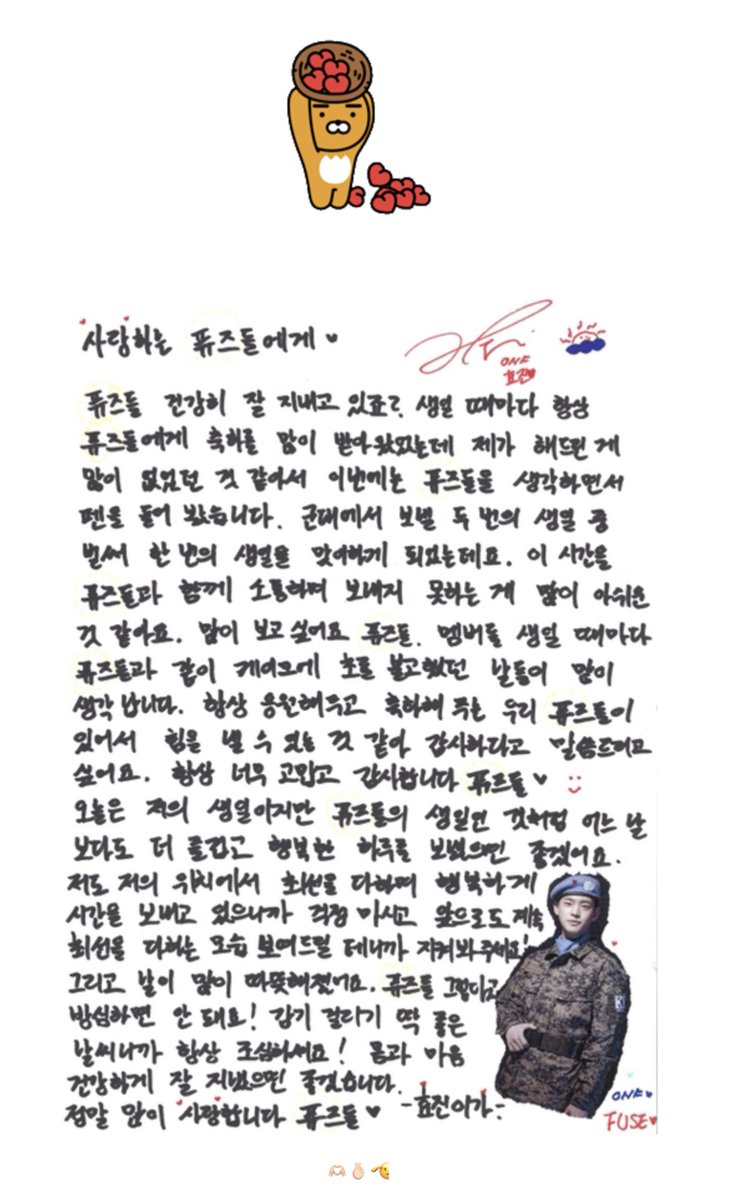 사랑하는 퓨즈들에게 ♥
ONF
효진♥
퓨즈들 건강히 잘 지내고 있죠? 생일 때마다 항상
퓨즈들에게 축하를 많이 받아왔었는데 제가 해드린 게
많이 없었던 것 같아서 이번에는 퓨즈들을 생각하면서
펜을 들어 봤습니다. 군대에서 보낼 두 번의 생일 중
벌써 한 번의 생일을 맞이하게 되었는데요. 이 시간을
퓨즈들과 함께 소통하며 보내지 못하는 게 많이 아쉬운
것 같아요. 많이 보고 싶어요 퓨즈들. 멤버들 생일 때마다
퓨즈들과 같이 케이크에 초를 불고 했던 날들이 많이
생각 납니다. 항상 응원해주고 축하해 주는 우리 퓨즈들이
있어서 힘을 낼 수 있는 것 같아 감사하다고 말씀드리고
싶어요. 항상 너무 고맙고 감사합니다 퓨즈들 ♥ :)
오늘은 저의 생일이지만 퓨즈들의 생일인 것처럼 어느 날
보다도 더 즐겁고 행복한 하루를 보냈으면 좋겠어요.
저도 저의 위치에서 최선을 다하며 행복하게
시간을 보내고 있으니까 걱정 마시고 앞으로도 계속
최선을 다하는 모습 보여드릴 테니까 지켜봐 주세요!
그리고 날이 많이 따뜻해졌어요. 퓨즈들 그렇다고
방심하면 안 돼요! 감기 걸리기 딱 좋은
날씨니까 항상 조심하세요! 몸과 마음
건강하게 잘 지냈으면 좋겠습니다.
정말 많이 사랑합니다 퓨즈들 ♥ -효진이가-
ONF♥
FUSE♥